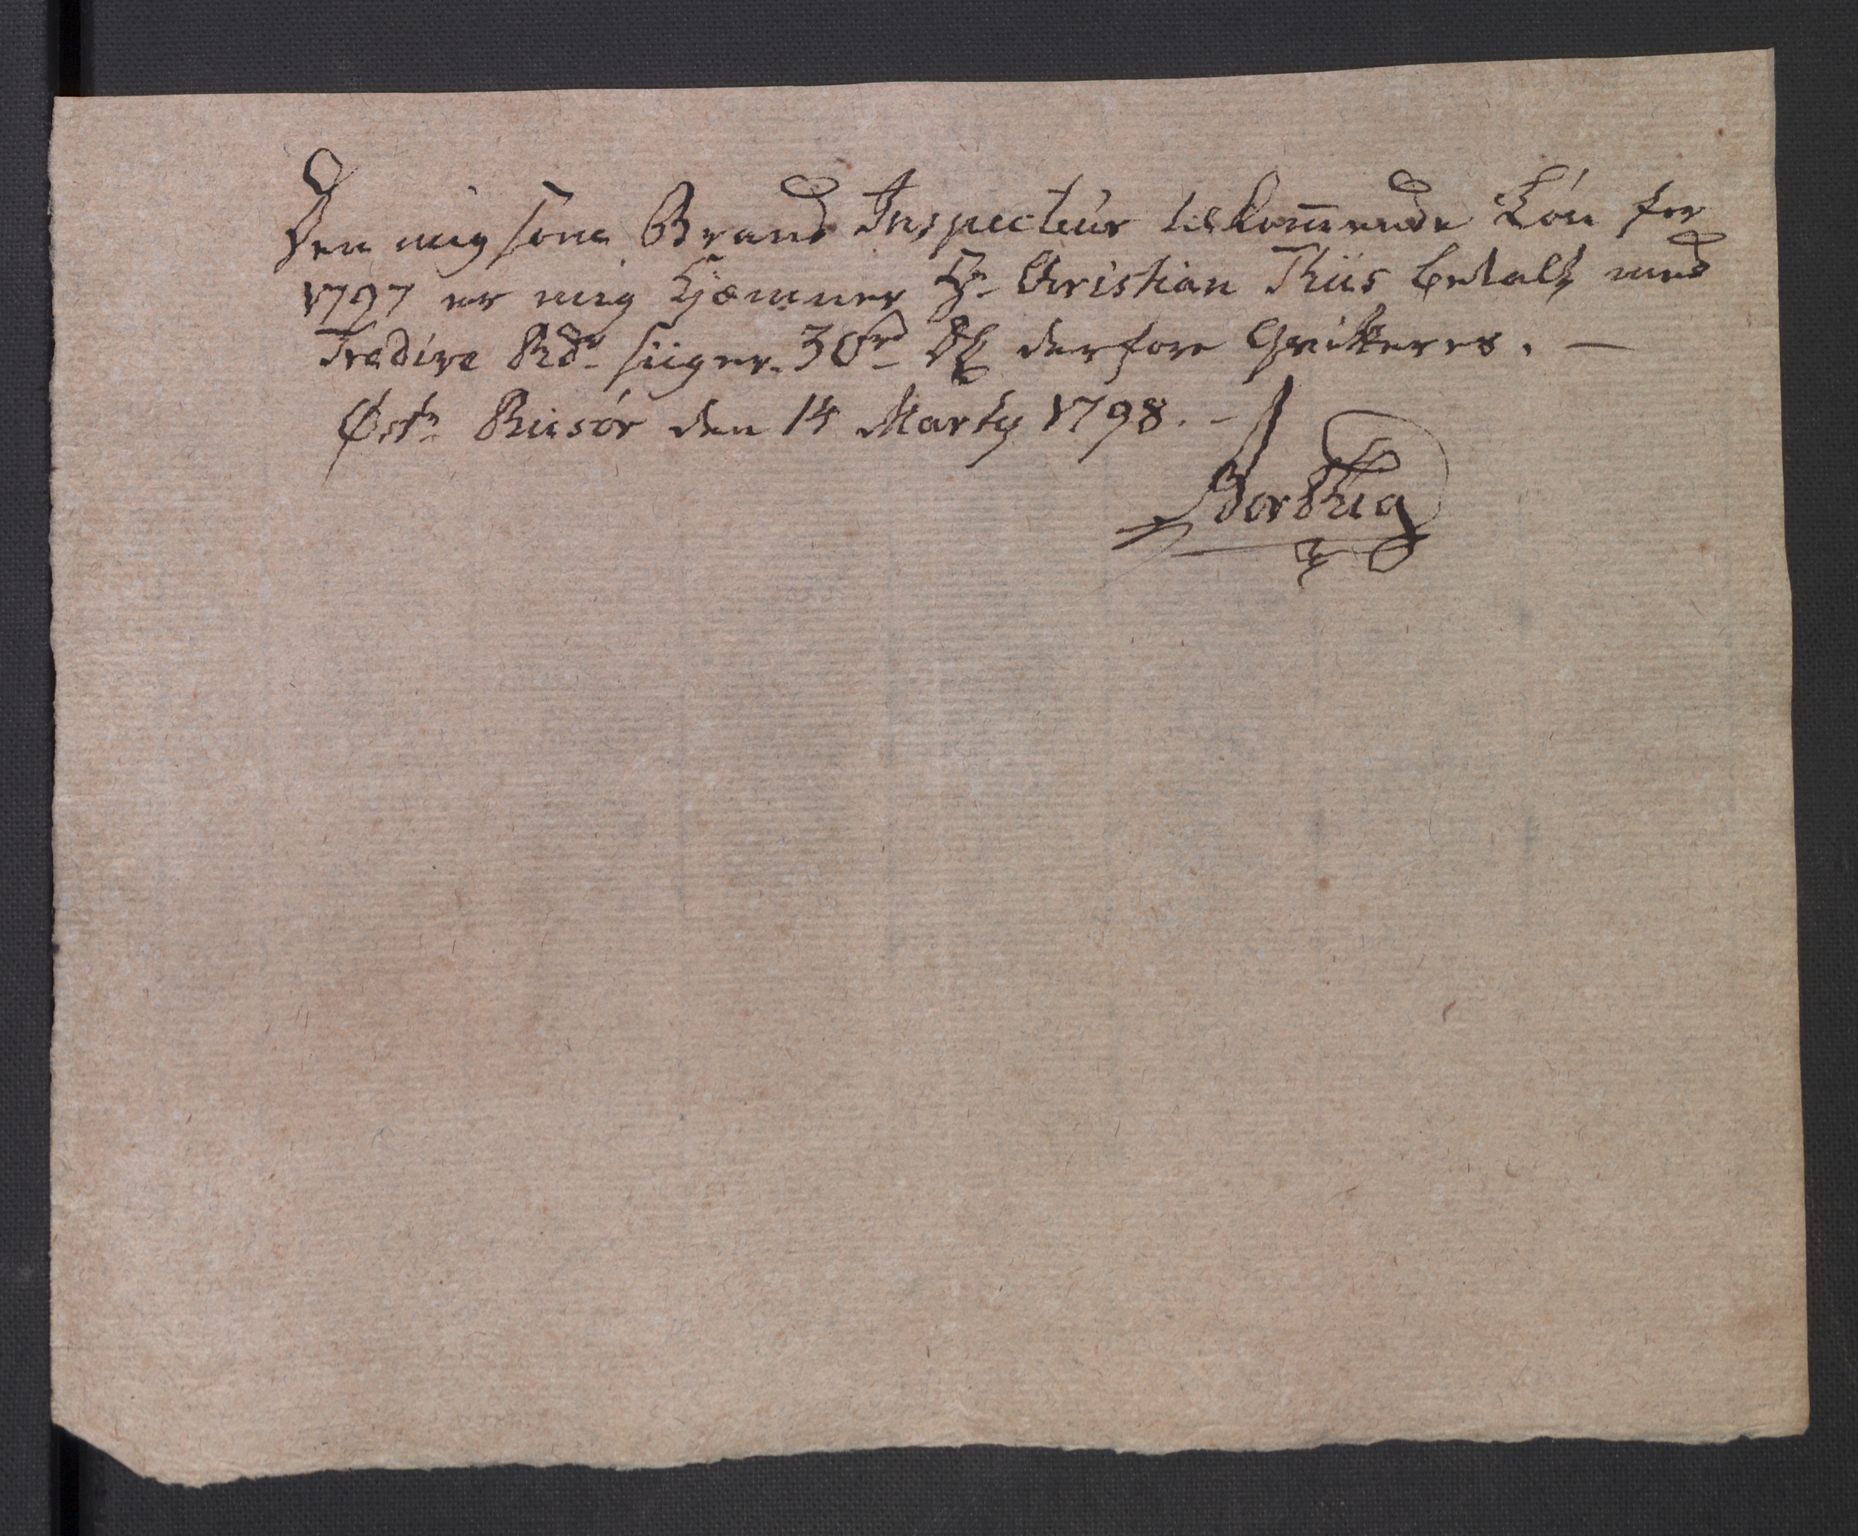 Den mig som Brand Inspecteur tilkom̅ende Løn for
1797 er mig Kjæmner Hr Christian Thiis betalt med
Tredive Rdr siiger 30 rd derfore Qvitteres. —
Østr Riisør den 14 Marty 1798. –